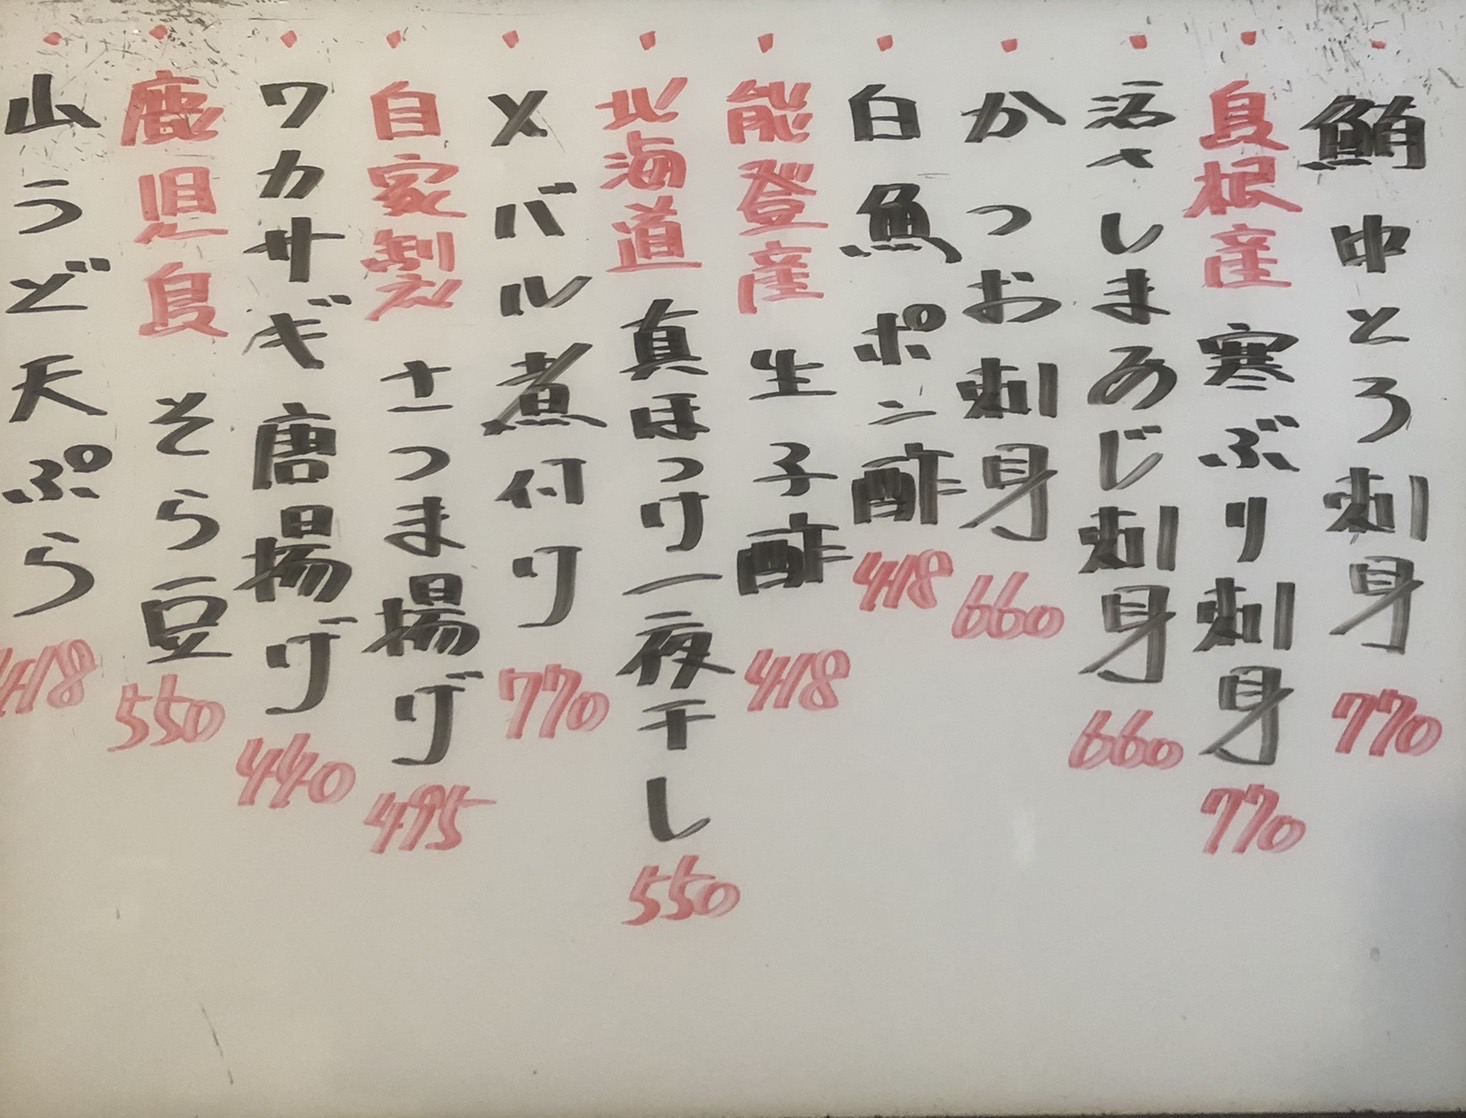 ・鮪中とろ刺身 770
・島根産 寒ぶり刺身 770
・活〆しまあじ刺身 660
・かつお刺身 660
・白魚ポン酢 418
・能登産 生子酢 418
・北海道 真ほっけ一夜干し 550
・メバル煮付け 770
・自家製 さつま揚げ 495
・ワカサギ唐揚げ 440
・鹿児島 そら豆 550
・山うど天ぷら 418